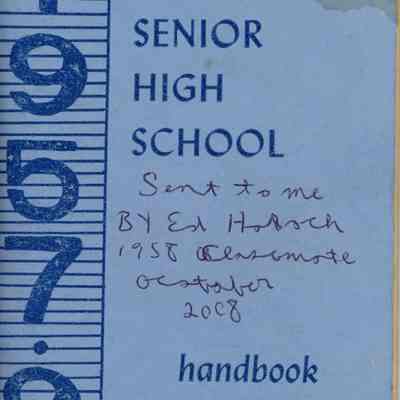 1957·
SENIOR
HIGH
SCHOOL
Sent to me
BY Ed
1958 Classmate
October
2008
handbook